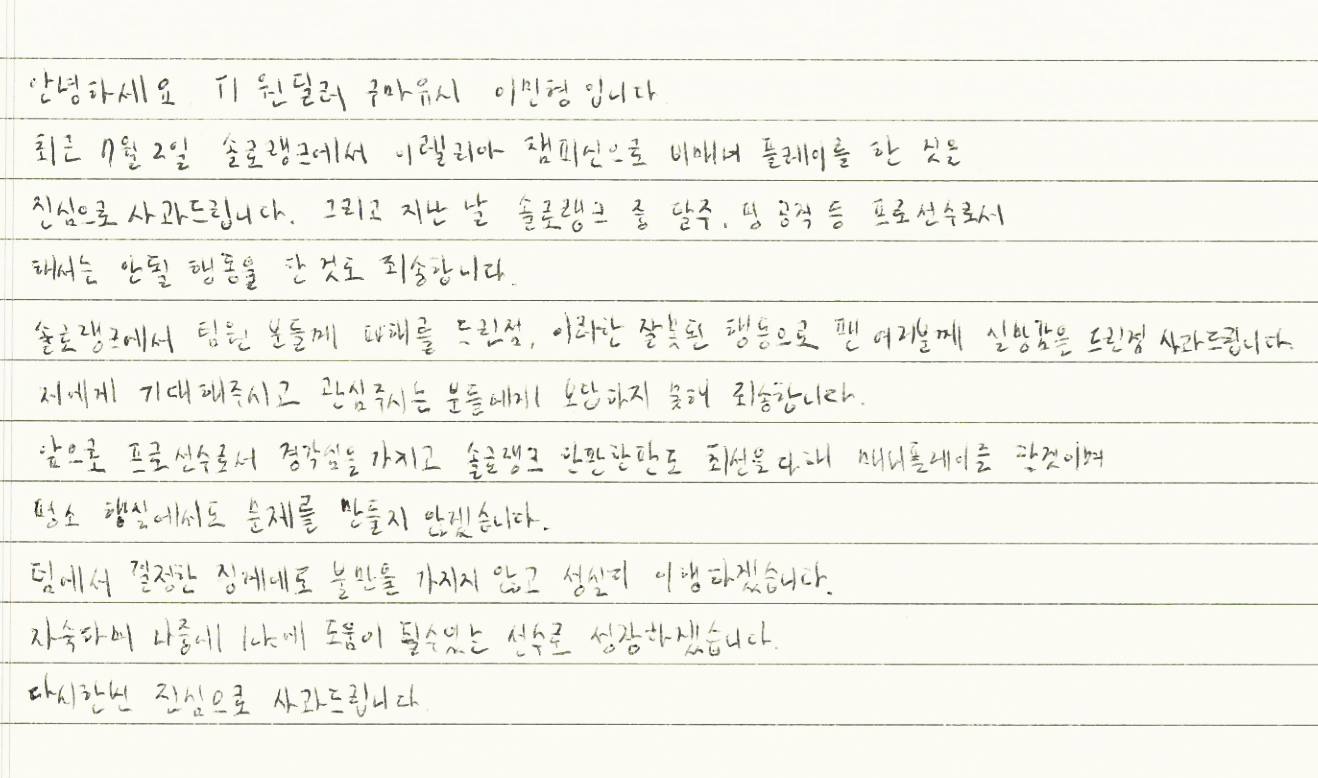 안녕하세요 T1 원딜러 구마유시 이민형 입니다
최근 7월 2일 솔로랭크에서 이렐리아 챔피언으로 비매너 플레이를 한 것을
진심으로 사과드립니다. 그리고 지난 날 솔로랭크 중 탈주, 핑 공격 등 프로선수로서
해서는 안될 행동을 한 것도 죄송합니다.
솔로랭크에서 팀원 분들께 피해를 드린점, 이러한 잘못된 행동으로 팬 여러분께 실망감을 드린점 사과드립니다.
저에게 기대해주시고 관심주시는 분들에게 보답하지 못해 죄송합니다.
앞으로 프로선수로서 경각심을 가지고 솔로랭크 한판한판도 최선을 다해 매너플레이를 할것이며
평소 행실에서도 문제를 만들지 않겠습니다.
팀에서 결정한 징계대로 불만을 가지지 않고 성실히 이행하겠습니다.
자숙하며 나중에 사회에 도움이 될수있는 선수로 성장하겠습니다.
다시한번 진심으로 사과드립니다